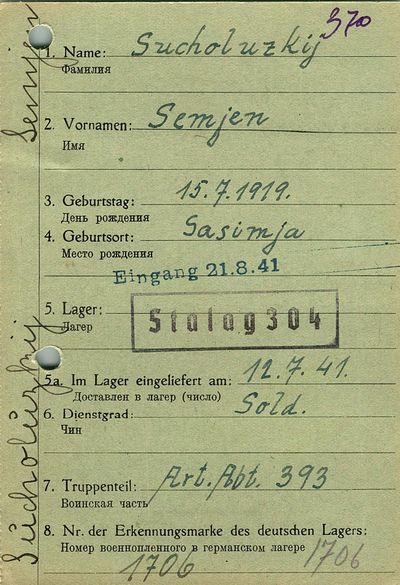 370
1. Name: Sucholuzkij
Фамилия
2. Vornamen: Semjen
Имя
3. Geburtstag: 15.7.1919.
День рождения
4. Geburtsort: Gasimja
Место рождения
Eingang 21.8.41
5. Lager: Stalag 304
Лагер
5a. Im Lager eingeliefert am: 12.7.41.
Доставлен в лагер (число)
6. Dienstgrad: Sold.
Чин
7. Truppenteil: Art. Abt. 393
Воинская часть
8. Nr. der Erkennungsmarke des deutschen Lagers:
Номер военнопленного в германском лагере 1706
1706
Sucholuzkij Semjen